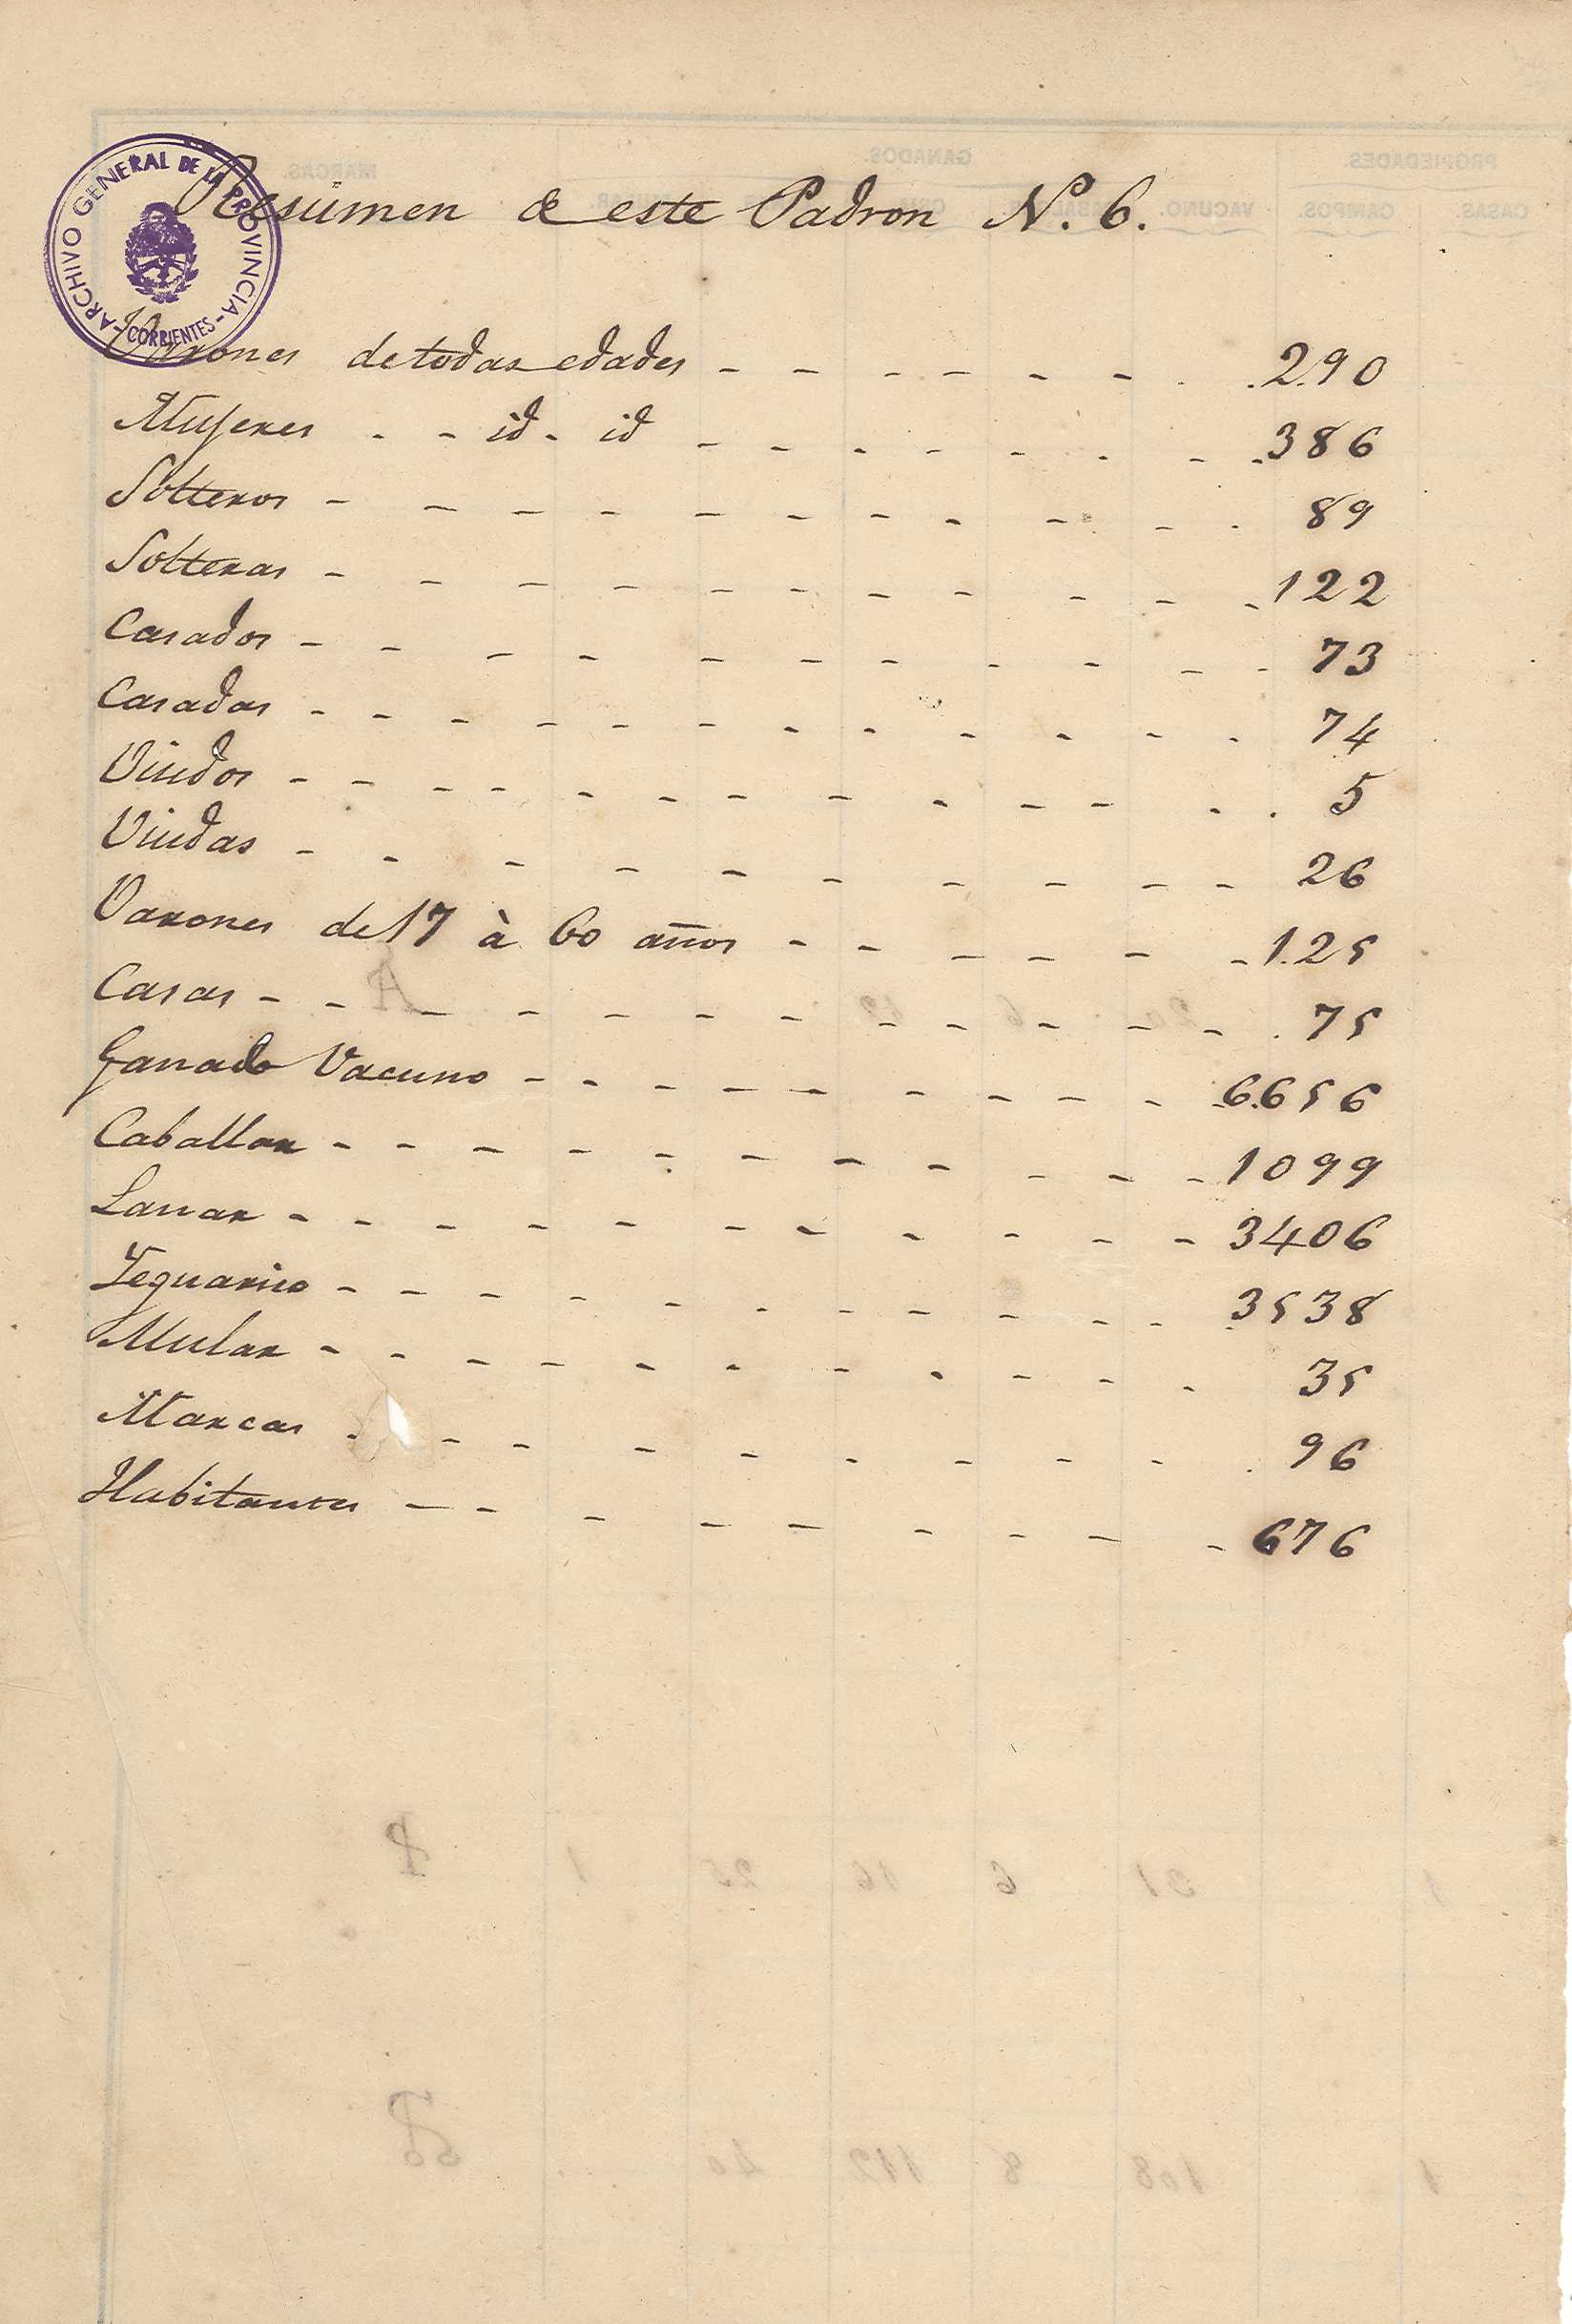 ARCHIVO GENERAL DE LA PROVINCIA - CORRIENTES -
Resúmen de este Padron Nº. 6.
Varones de todas edades - - - - - - . . 290
Mujeres - - id - id - - - - - - - - 386
Solteros - - - - - - - - - - - 89
Solteras - - - - - - - - - - - 122
Casados - - - - - - - - - - - 73
Casadas - - - - - - - - - - - - 74
Viudos - - - - - - - - - - - . . 5
Viudas - - - - - - - - - - 26
Varones de 17 à 60 años - - - - - - 125
Casas - - - - - - - - - - - - . 75
Ganado Vacuno - - - - - - - - - 6656
Caballar - - - - - - - - - - - 1099
Lanar - - - - - - - - - - - 3406
Yeguariso - - - - - - - - - - 3538
Mular - - - - - - - - - - - 35
Marcas . - - - - - - - - . 96
Habitantes - - - - - - - - - 676